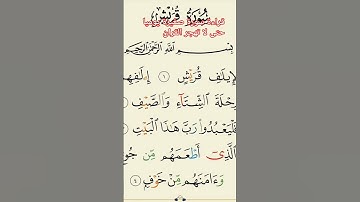 سُورَةُ قُرَيْشٍ
قراءة صغيرة يوميا
حتى لا تهجر القران
بِسْمِ اللَّهِ الرَّحْمَٰنِ الرَّحِيمِ
لِإِيلَٰفِ قُرَيْشٍ ١ إِۦلَٰفِهِمْ
رِحْلَةَ الشِّتَآءِ وَالصَّيْفِ
فَلْيَعْبُدُوا۟ رَبَّ هَٰذَا الْبَيْتِ
الَّذِىٓ أَطْعَمَهُم مِّن جُو
وَءَامَنَهُم مِّنْ خَوْفٍۭ ٤